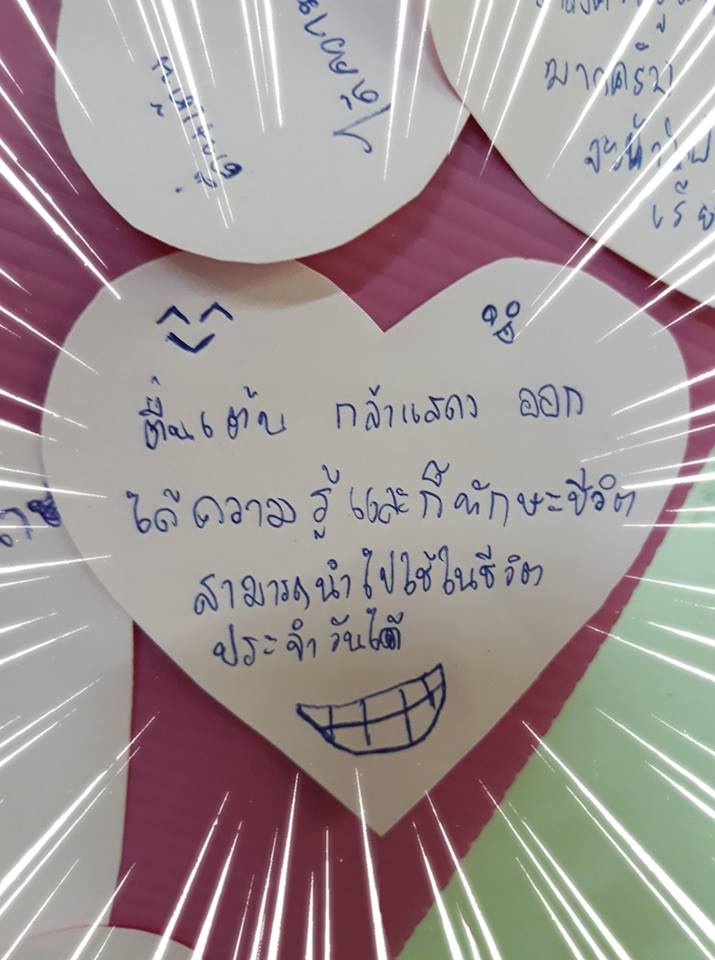 ได้ออก
มากครับ
จะนำไป
ตื่นเต้น กล้าแสดง ออก
ได้ความ รู้ และก็ทักษะชีวิต
สามารถนำไปใช้ในชีวิต
ประจำวันได้